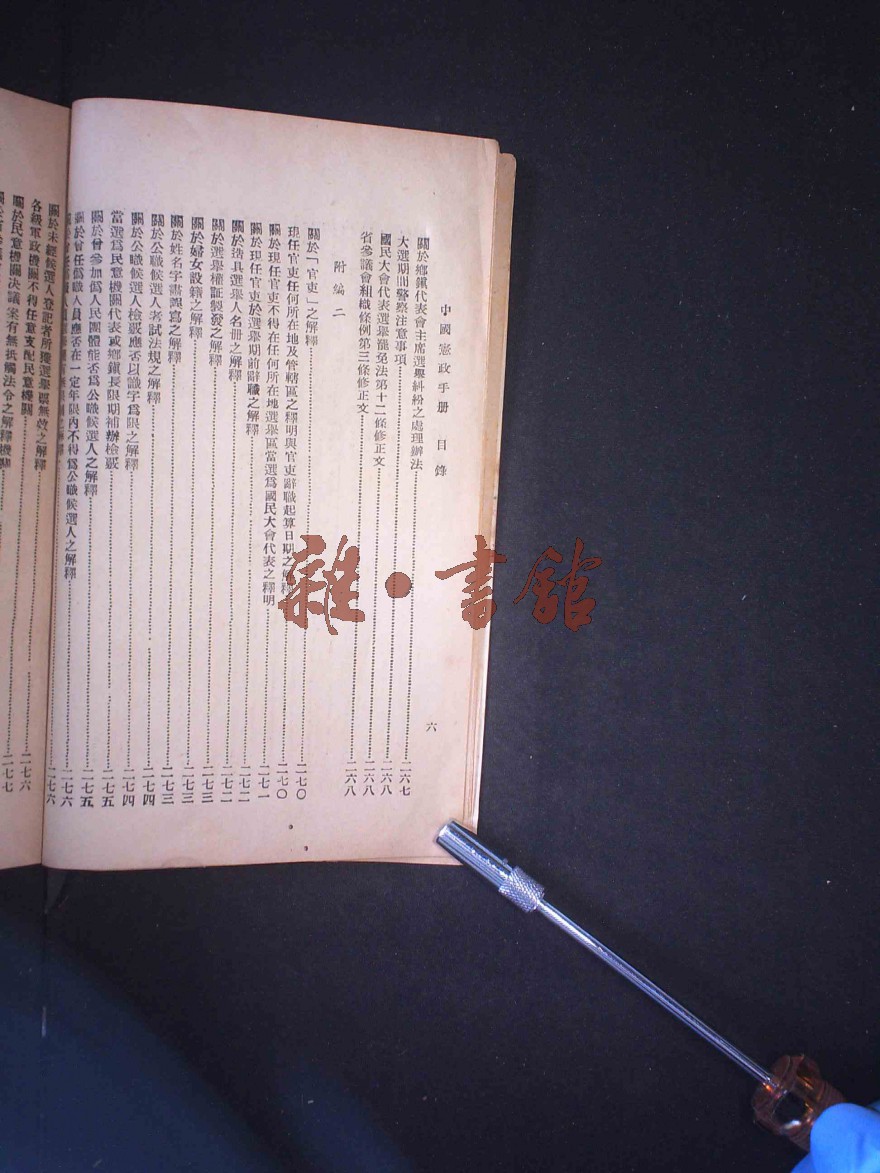 中國憲政手册 目錄
六
關於鄉鎭代表會主席選舉糾紛之處理辦法……二六七
大選期間警察注意事項……二六八
國民大會代表選舉罷免法第十二條修正文……二六八
省參議會組織條例第三條修正文……二六八
附編二
關於「官吏」之解釋……二七〇
現任官吏任何所在地及管轄區之釋明與官吏辭職起算日期之解釋……二七〇
關於現任官吏不得在任何所在地選舉區當選爲國民大會代表之釋明……二七一
關於現任官吏於選舉期前辭職之解釋……二七二
關於造具選舉人名冊之解釋……二七二
關於選舉權証製發之解釋……二七三
關於婦女設籍之解釋……二七三
關於姓名字畫誤寫之解釋……二七三
關於公職候選人考試法規之解釋……二七四
關於公職候選人檢覈應否以識字爲限之解釋……二七四
當選爲民意機關代表或鄉鎭長限期補辦檢覈……二七五
關於曾參加僞人民團體能否爲公職候選人之解釋……二七五
關於曾任僞職人員應否在一定年限內不得爲公職候選人之解釋……二七六
之解釋……二七六
關於未經候選人登記者所獲選舉票無效之解釋
各級軍政機關不得任意支配民意機關……二七六
關於民意機關決議案有無抵觸法令之解釋機關……二七七